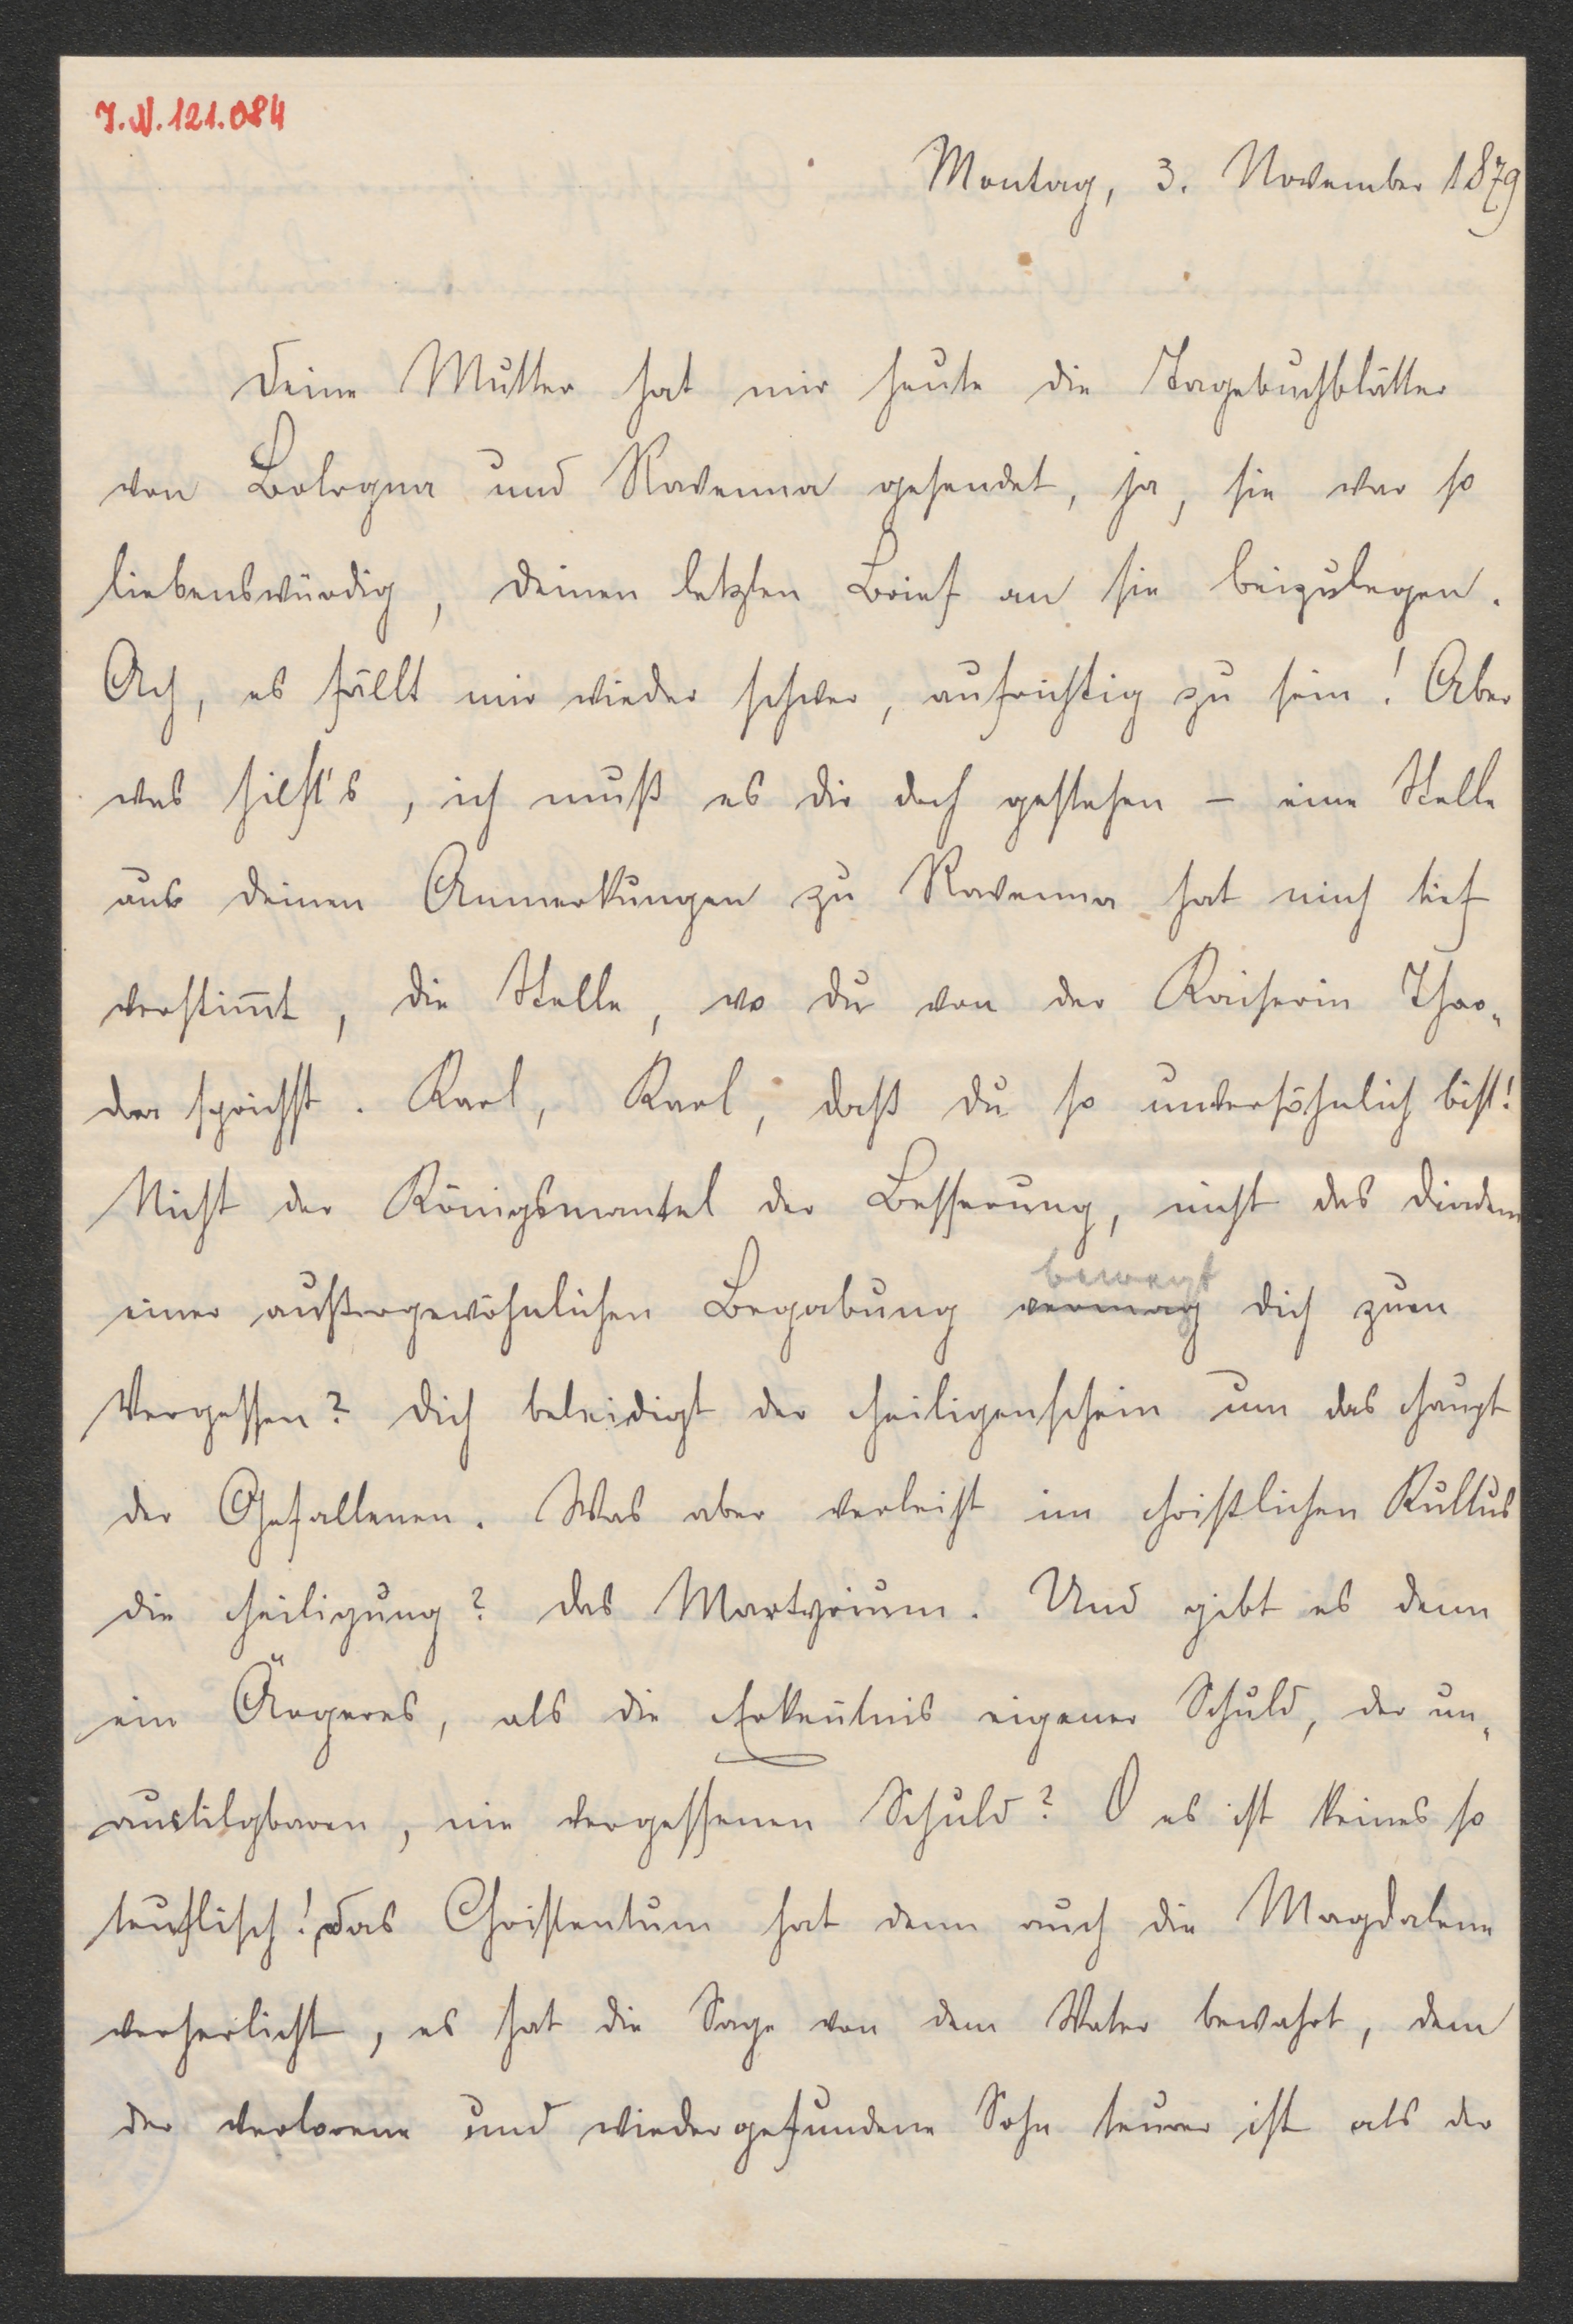 J.N. 121.084
Montag, 3. November 1879
Deine Mutter hat mir heute die Tagebuchblätter
von Bologna und Ravenna gesendet, ja, sie war so
liebenswürdig, deinen letzten Brief an sie beizulegen.
Ach, es fällt mir wieder schwer, aufrichtig zu sein! Aber
was hilft's, ich muß es dir doch gestehen – eine Stelle
aus deinen Anmerkungen zu Ravenna hat mich tief
verstim̅t, die Stelle, wo du von der Kaiserin Theo„
dora sprichst. Karl, Karl, daß du so unversöhnlich bist!
Nicht der Königsmantel der Besserung, nicht das Diadem
bewegt
einer außergewöhnlichen Begabung vermag dich zum
Vergessen? Dich beleidigt der Heiligenschein um das Haupt
der Gefallenen. Was aber verleiht im christlichen Kultus
die Heiligung? Das Martyrium. Und gibt es denn
ein Ärgeres, als die Erken̅tnis eigener Schuld, der un„
austilgbaren, nie vergessenen Schuld? O es ist keines so
teuflisch! Das Christentum hat denn auch die Magdalena
verherlicht, es hat die Sage von dem Vater bewahrt, dem
der verlorene und wiedergefundene Sohn teurer ist als der